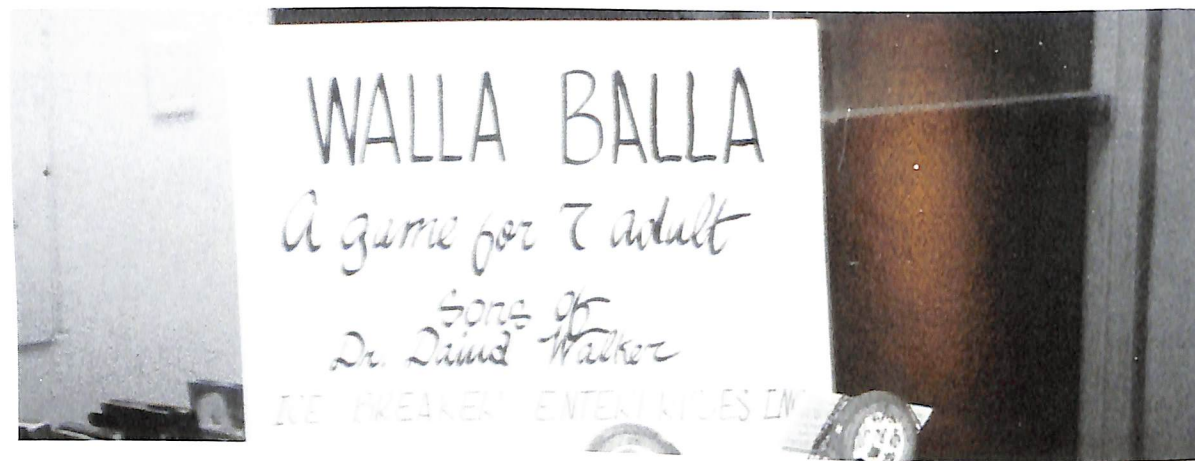 WALLA BALLA
A game for 7 adult
sons of
Dr. David Walker
ICE BREAKER ENTERPRISES INC